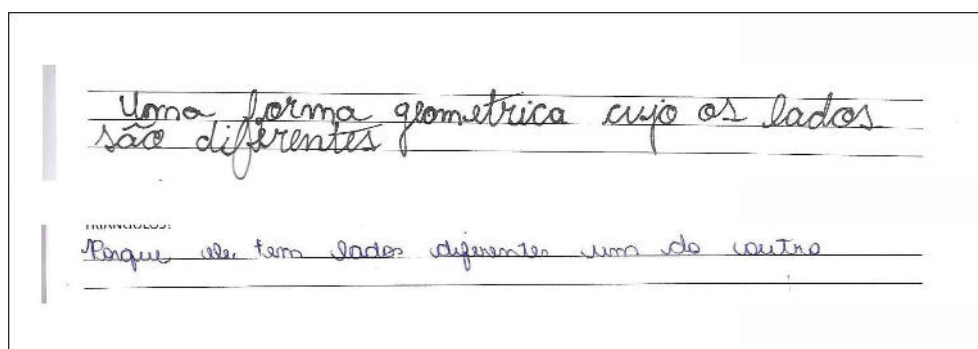 Uma forma geometrica cujo os lados
são diferentes
TRIÂNGULOS?
Porque ele tem lados diferentes um do outro